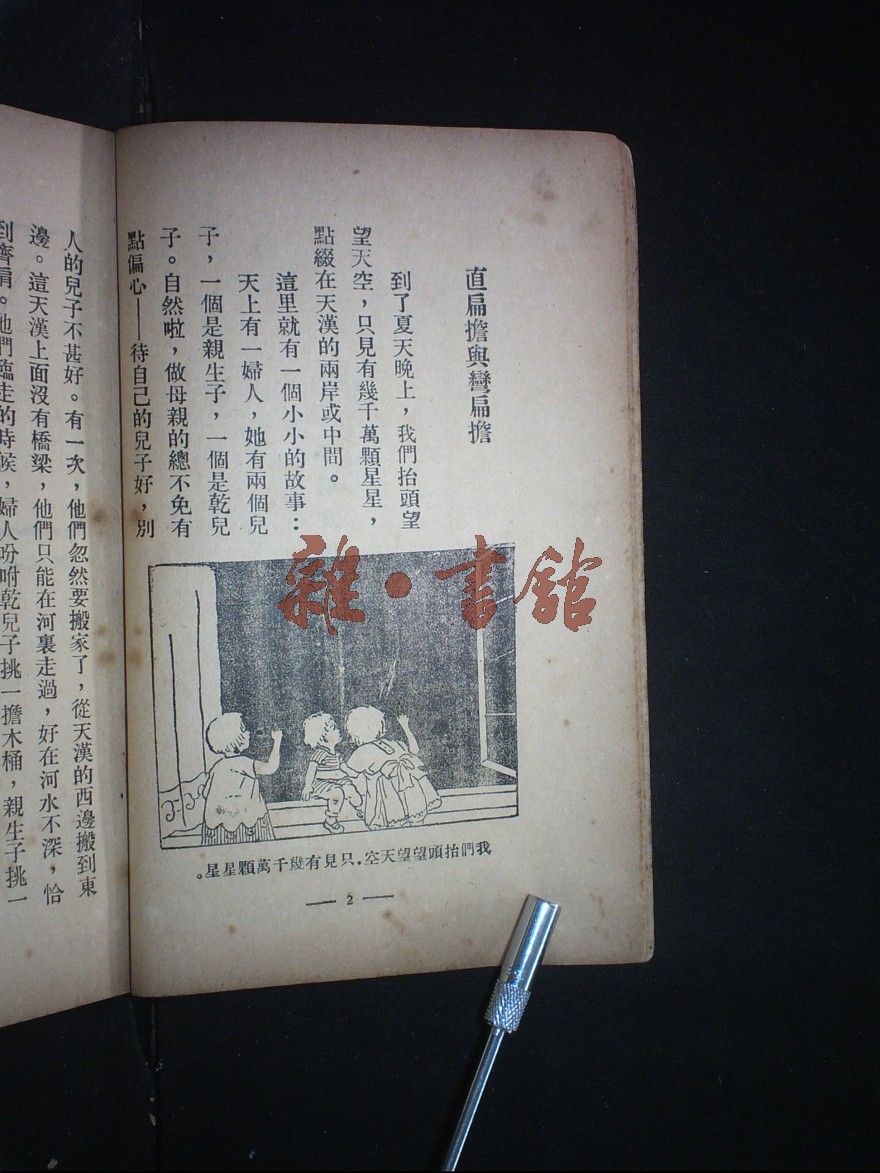 直扁擔與彎扁擔
到了夏天晚上，我們抬頭望
望天空，只見有幾千萬顆星星，
點綴在天漢的兩岸或中間。
這里就有一個小小的故事：
天上有一婦人，她有兩個兒
子，一個是親生子，一個是乾兒
子。自然啦，做母親的總不免有
點偏心——待自己的兒子好，別
我們抬頭望望天空，只見有幾千萬顆星星。
— 2 —
人的兒子不甚好。有一次，他們忽然要搬家了，從天漢的西邊搬到東
邊。這天漢上面沒有橋梁，他們只能在河裏走過，好在河水不深，恰
到齊肩。他們臨走的時候，婦人吩咐乾兒子挑一擔木桶，親生子挑一
雜·書館